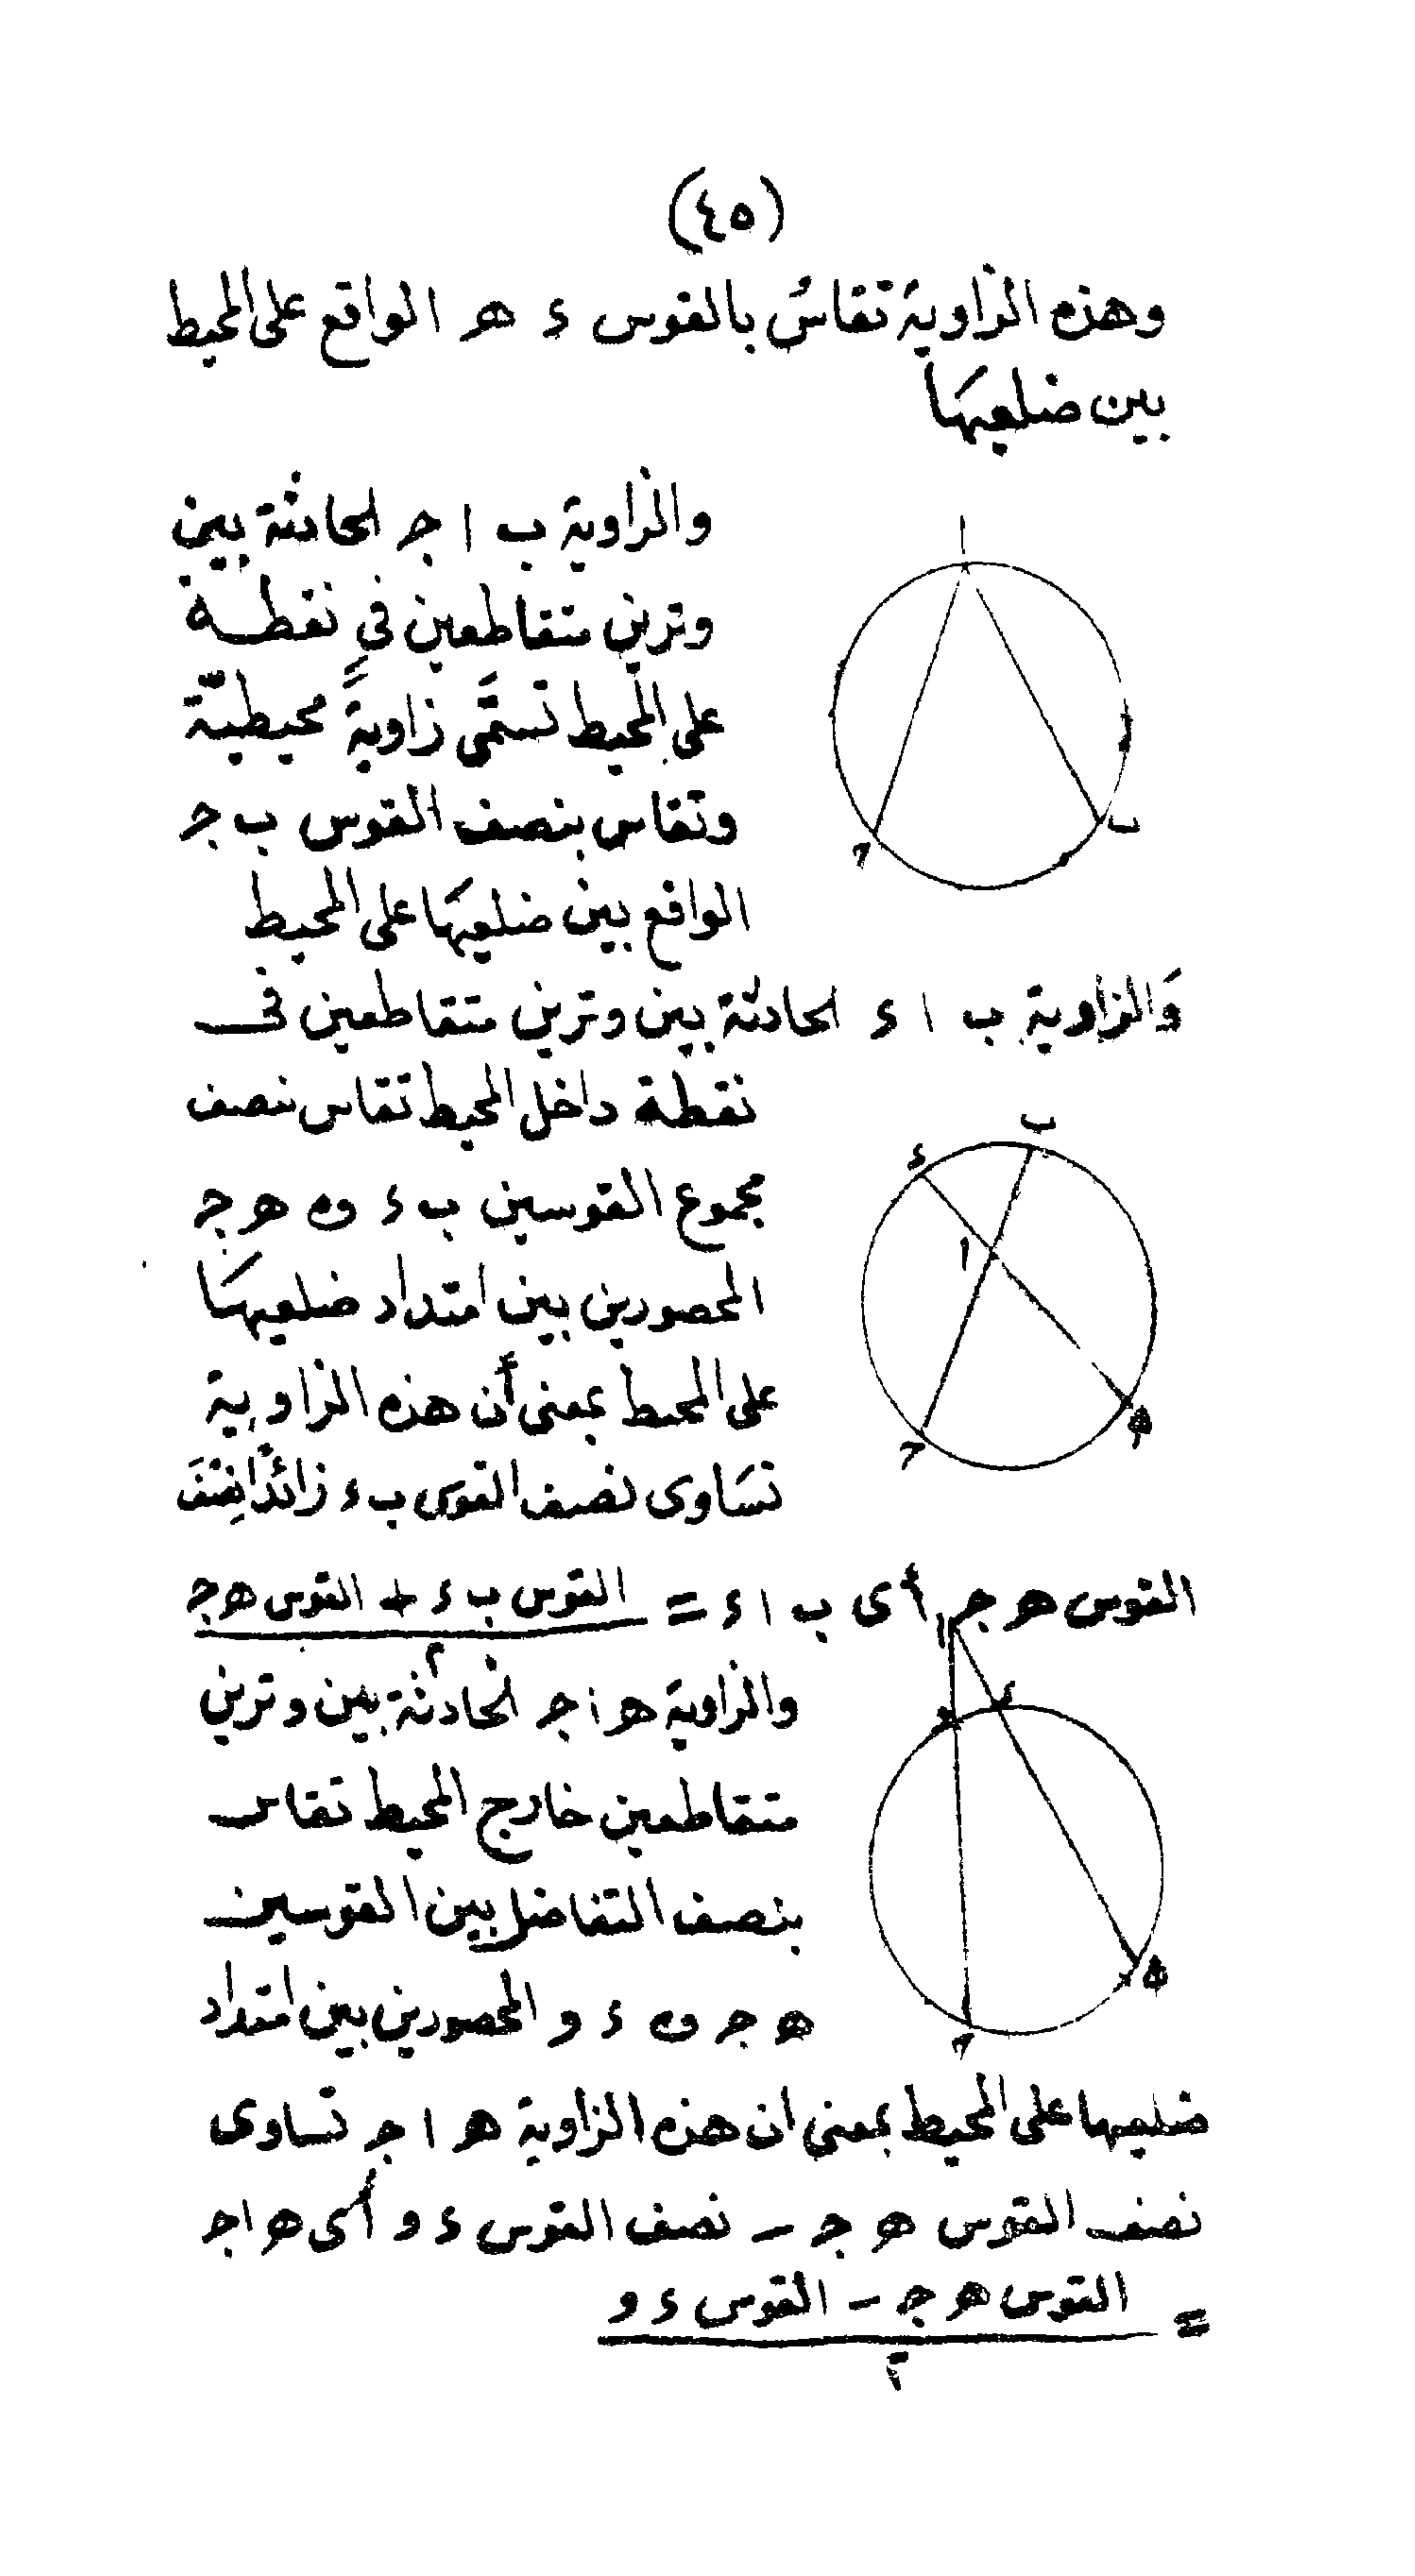 (٤٥)
وهذه الزاوية تقاسُ بالقوس ء هـ الواقع على المحيط
بين ضلعيهَا
والزاوية ب ا جـ الحادثة بين
وترين متقاطعين في نقطة
على المحيط تسمَّى زاويةً محيطيّة
وتقاس بنصف القوس ب جـ
الواقع بين ضلعيهَا على المحيط
ا
ب
جـ
وَالزاوية ب ا ء الحادثة بين وترين متقاطعين فى
نقطة داخل المحيط تقاس بنصف
مجموع القوسين ب ء و هـ جـ
المحصورين بين امتداد ضلعيهَا
على المحيط بمعنى أن هذه الزاوية
تسَاوى نصف القوس ب ء زائدًا نِصْفَ
ب
ء
ا
جـ
هـ
القوس هـ جـ أى ب ا ء = القوس ب ء + القوس هـ جـ
٢
والزاوية هـ ا جـ الحادثة بين وترين
متقاطعين خارج المحيط تقاس
بنصف التفاضل بين القوسين
هـ جـ و ء و المحصورين بين امتداد
ا
ء
و
هـ
جـ
ضلعيها على المحيط بمعنى ان هذه الزاوية هـ ا جـ تساوى
نصف القوس هـ جـ − نصف القوس ء و أى هـ ا جـ
= القوس هـ جـ − القوس ء و
٢